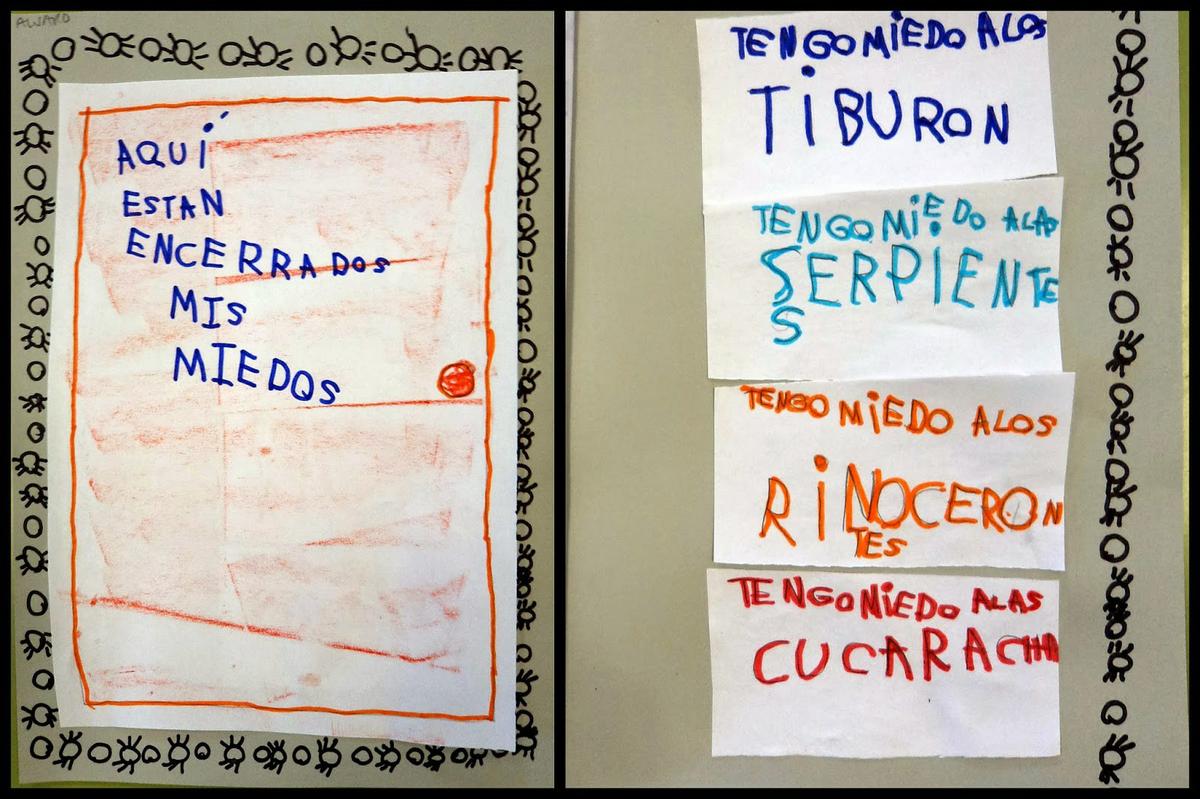 ALVARO
AQUÍ
ESTAN
ENCERRADOS
MIS
MIEDOS
TENGO MIEDO A LOS
TIBURON
TENGO MIEDO A LAS
SERPIENTE
S
TENGO MIEDO A LOS
RINOCERON
TES
TENGO MIEDO A LAS
CUCARACHA